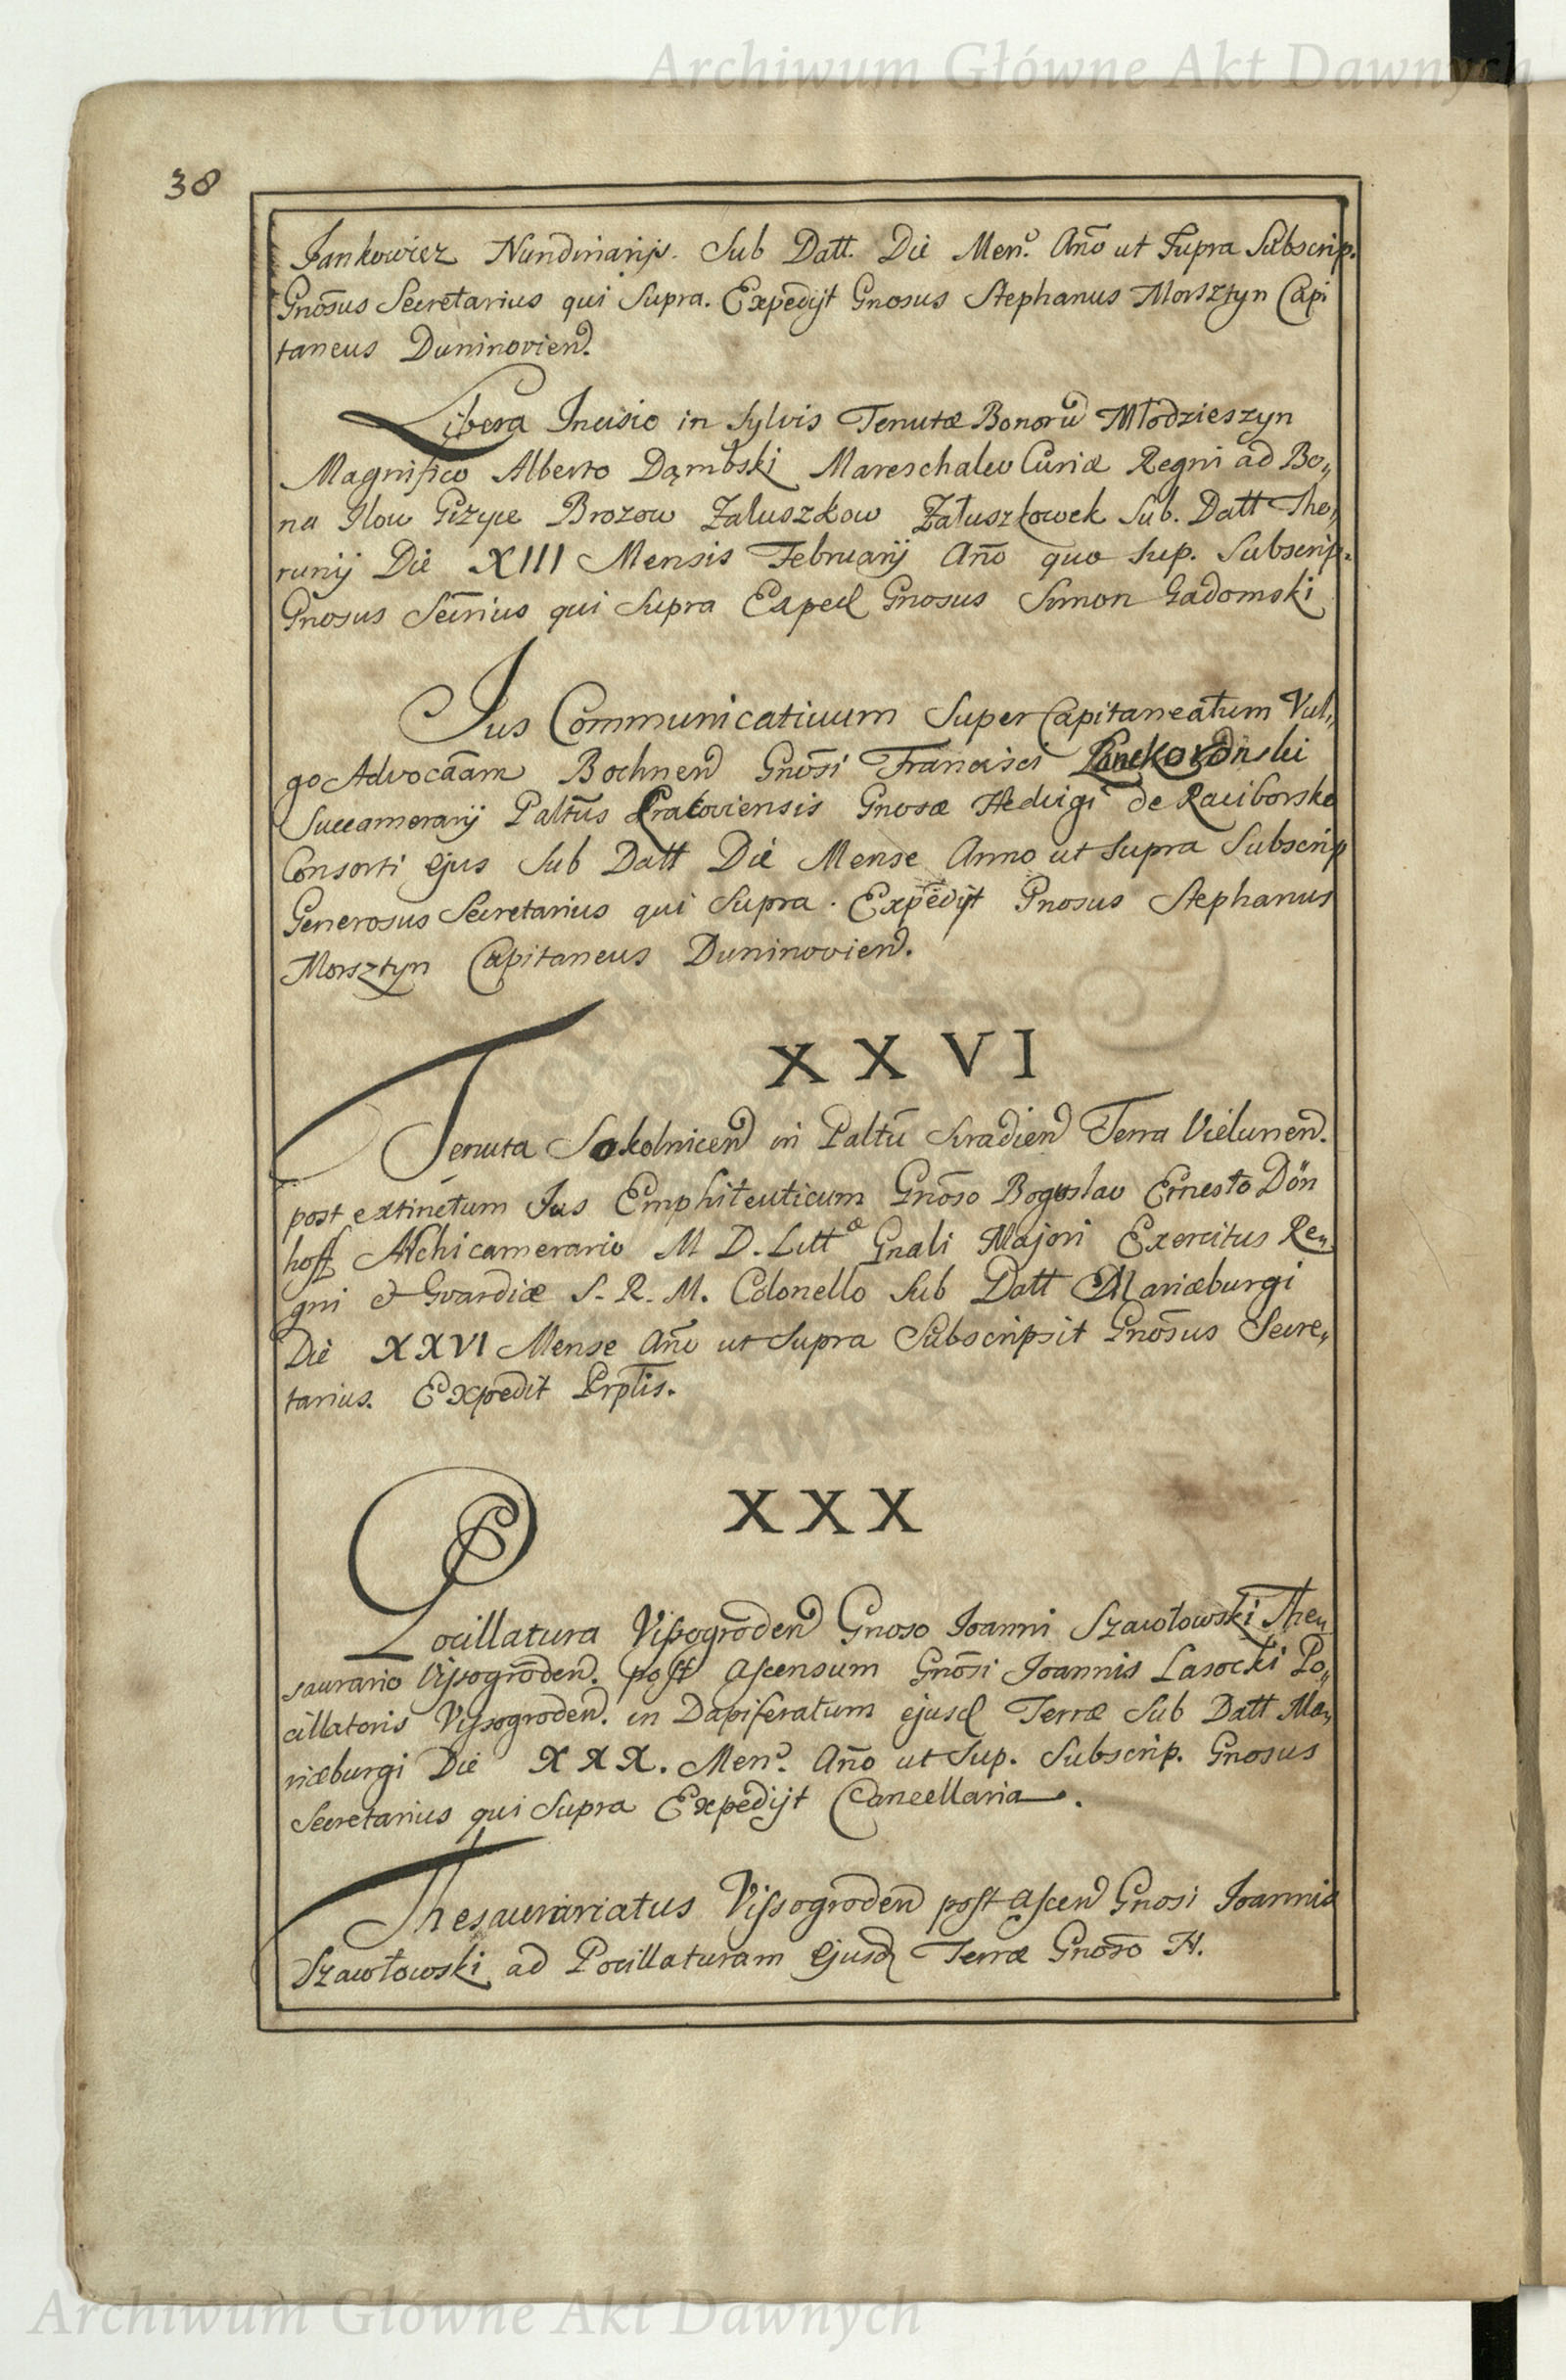 Archiwum Główne Akt Dawnych
38
Jankowicz Nundinarijs. Sub Datt. Die Men. Año ut Supra Subscrip.
Gnosus Secretarius qui Supra. Expedijt Gnosus Stephanus Morsztyn Capi
taneus Duninovien.
Libera Incisio in Sylvis Tenutæ Bonorū Młodzieszyn
Magnifico Alberto Dąmbski Mareschalco Curiæ Regni ad Bo„
na Ilow Giżyce Brozow Załuszkow Załuszkowek Sub. Datt Tho„
runij Die XIII Mensis Februarij Año quo Sup. Subscrip.
Gnosus Secrius qui Supra Exped Gnosus Simon Gadomski
Jus Communicativum Super Capitaneatum Vul„
go Advocãam Bochnen Gnosi Francisci Lanckoronski
Succamerarij Paltus Cracoviensis Gnosæ Hedvigi de Raciborsko
Consorti ejus Sub Datt Die Mense Anno ut Supra Subscrip
Generosus Secretarius qui Supra. Expedijt Gnosus Stephanus
Morsztyn Capitaneus Duninovien.
XXVI
Tenuta Sokolnicen in Paltū Siradien Terra Vielunen.
post extinctum Jus Emphiteuticum Gnoso Boguslao Ernesto Dön
hoff Archicamerario M D. Litt Gnali Majori Exercitus Re„
gni & Gvardiæ S. R. M. Colonello Sub Datt Mariæburgi
Die XXVI Mense Año ut Supra Subscripsit Gnosus Secre„
tarius. Expedit Prptis.
XXX
Pocillatura Vissogroden Gnoso Joanni Szawłowski The„
saurario Vissogroden. post Ascensum Gnosi Joannis Lasocki Po„
cillatoris Vissogroden. in Dapiferatum ejusd Terræ Sub Datt Ma„
riæburgi Die XXX. Men. Año ut Sup. Subscrip. Gnosus
Secretarius qui Supra Expedijt Cancellaria.
Thesaurariatus Vissogroden post Ascen Gnosi Joannis
Szawłowski ad Pocillaturam Ejusd Terræ Gnoso N.
Archiwum Główne Akt Dawnych